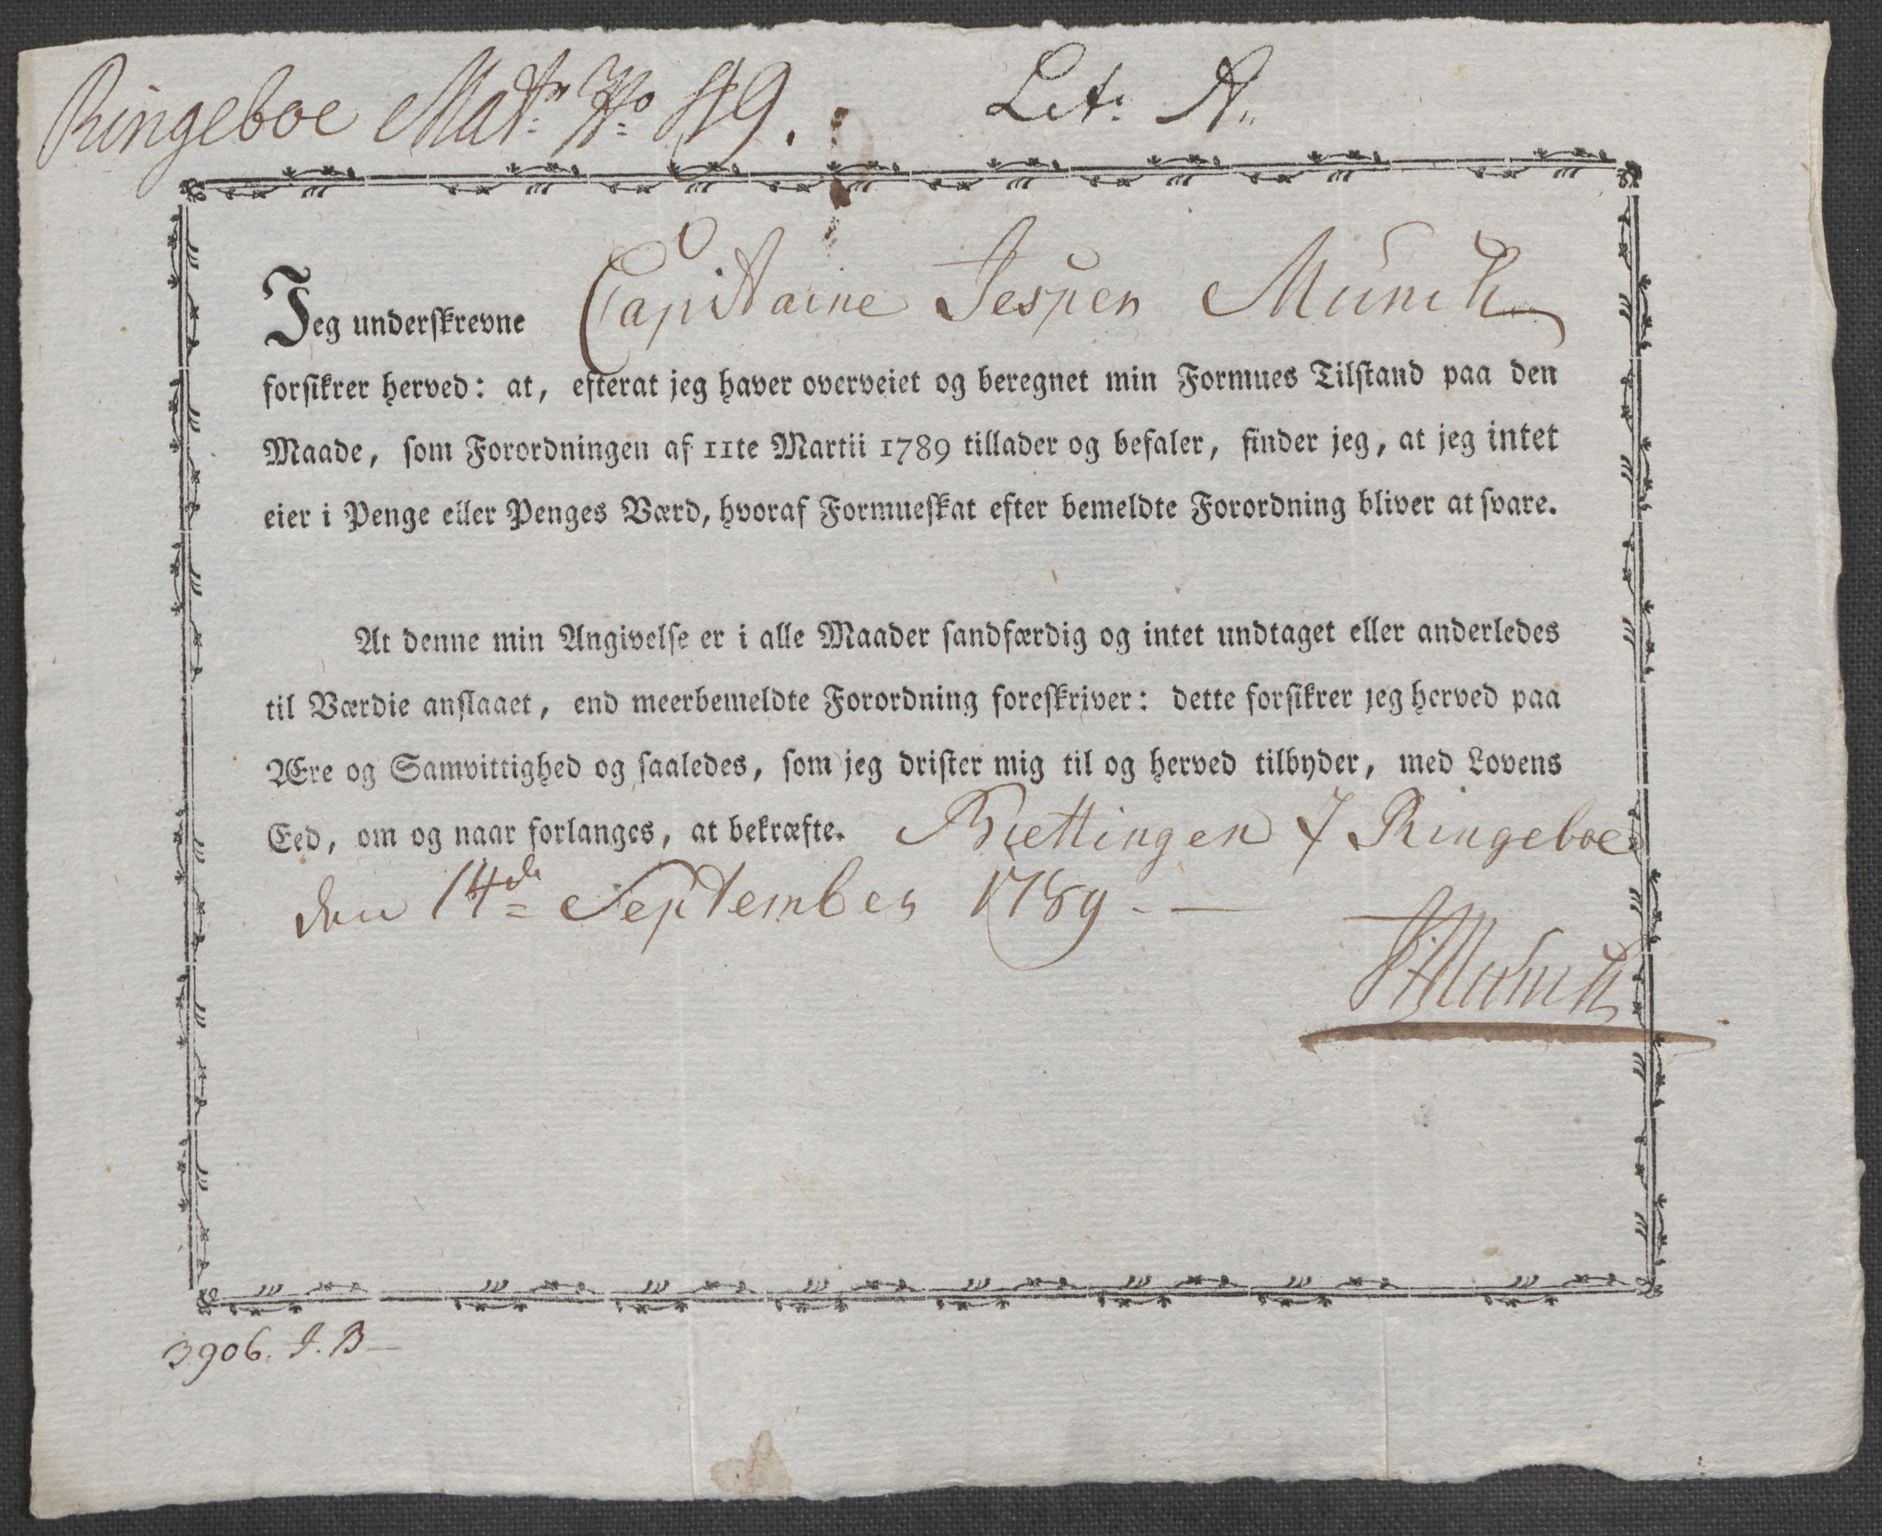 Ringeboe Matr: No 49. Lit: A.
Jeg underskrevne Capitaine Jesper Münch
forsikrer herved: at, efterat jeg haver overveiet og beregnet min Formues Tilstand paa den
Maade, som Forordningen af 11te Martii 1789 tillader og befaler, finder jeg, at jeg intet
eier i Penge eller Penges Værd, hvoraf Formueskat efter bemeldte Forordning bliver at svare.
At denne min Angivelse er i alle Maader sandfærdig og intet undtaget eller anderledes
til Værdie anslaaet, end meerbemeldte Forordning foreskriver: dette forsikrer jeg herved paa
Ære og Samvittighed og saaledes, som jeg drister mig til og herved tilbyder, med Lovens
Eed, om og naar forlanges, at bekræfte. I Ringeboe
den 14de September 1789.
J: Münch
3906. J. B